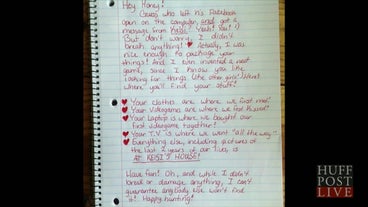 Hey Honey!
Guess who left his Facebook
open on the computer and got a
message from Keisi? Yeah! You! :)
But don't worry, I didn't
break anything! ♥ Actually, I was
nice enough to package your
things! And I even invented a new
game, since I know you like
looking for things (like other girls).
where you'll find your stuff!
♥ Your clothes are where we first met.
♥ Your videogames are where we first kissed!
♥ Your laptop is where we bought our
first videogame together!
♥ Your T.V. is where we went "all the way."
♥ Everything else, including pictures of
the last 2 years of our lives, is
AT KEISI'S HOUSE!
Have fun! Oh, and while I didn't
break or damage anything, I can't
guarantee anybody else won't find
it! Happy hunting!
HUFF
POST
LIVE